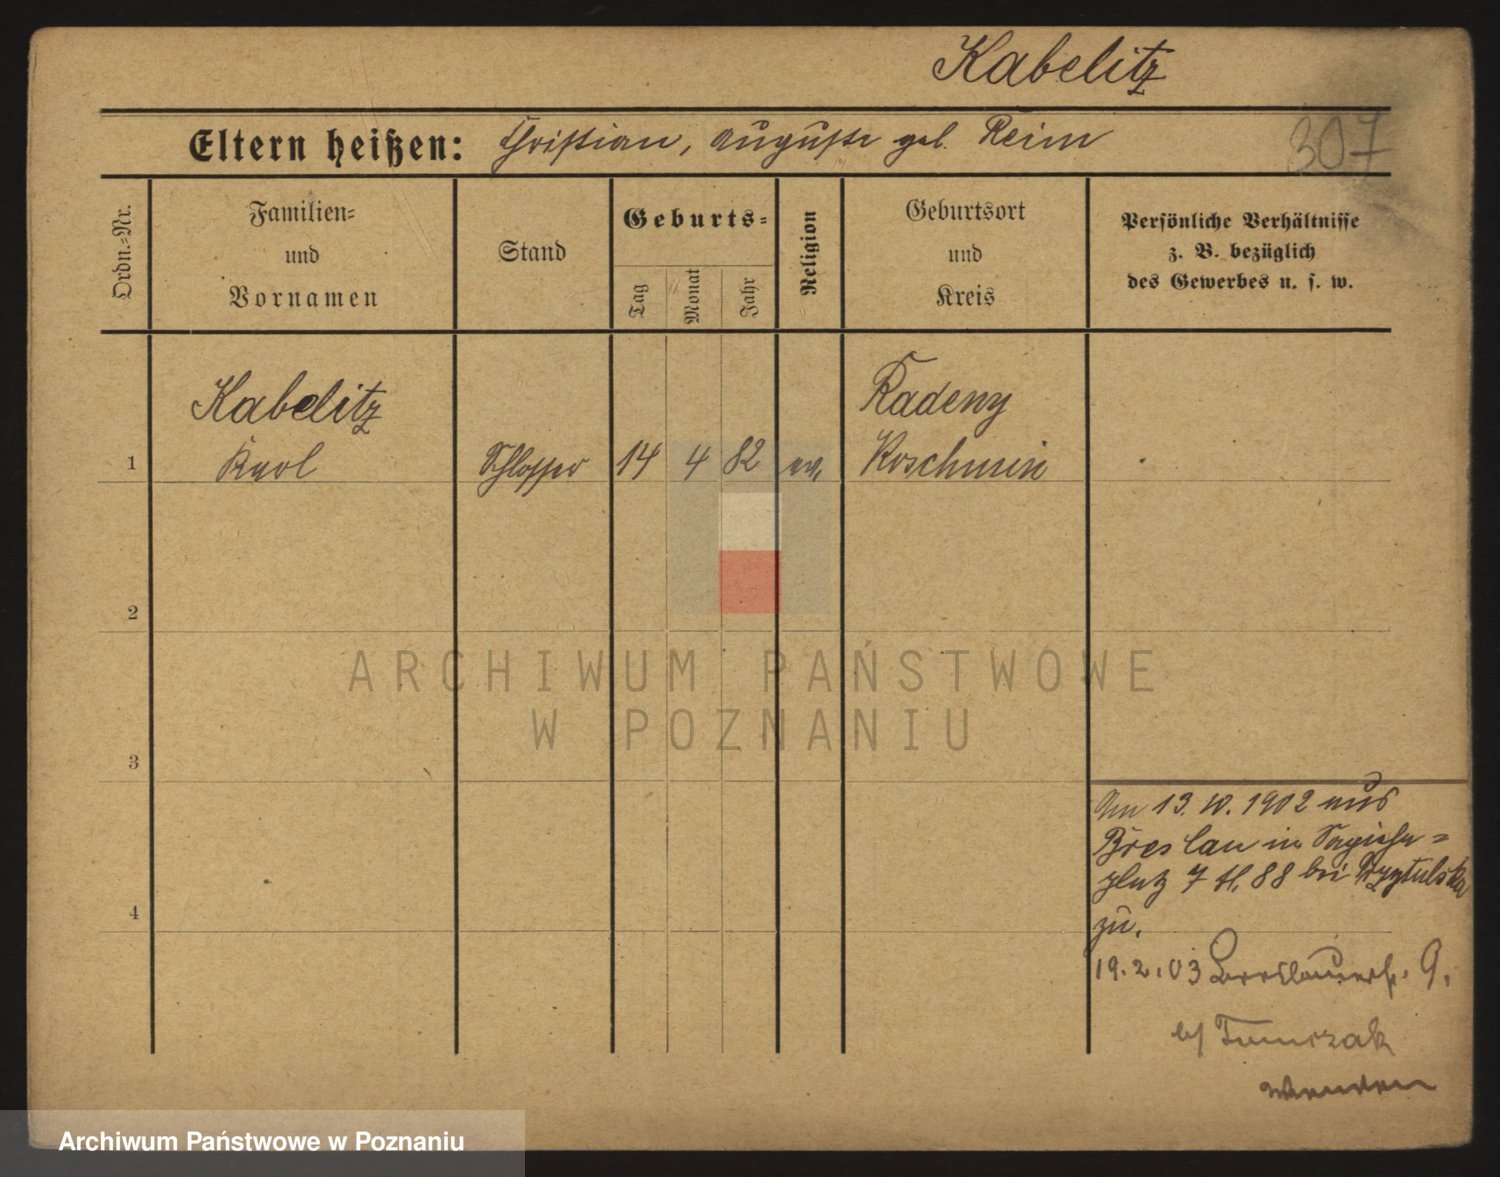 Kabelitz
307
Eltern heißen: Christian, Auguste geb. Reim
Ordn.=Nr.
Familien=
und
Vornamen
Stand
Geburts=
Tag
Monat
Jahr
Religion
Geburtsort
und
Kreis
Persönliche Verhältnisse
z. B. bezüglich
des Gewerbes u. s. w.
Kabelitz
Radenz
1 Karl Schlosser 14 4 82 ev. Koschmin
2
ARCHIWUM PAŃSTWOWE
W POZNANIU
3
Am 13.10.1902 aus
Breslau in Sapieha=
platz 7 bei
4
zu.
19.2.03 Breslauerstr. 9.
b/ Tomczak
wenden
Archiwum Państwowe w Poznaniu